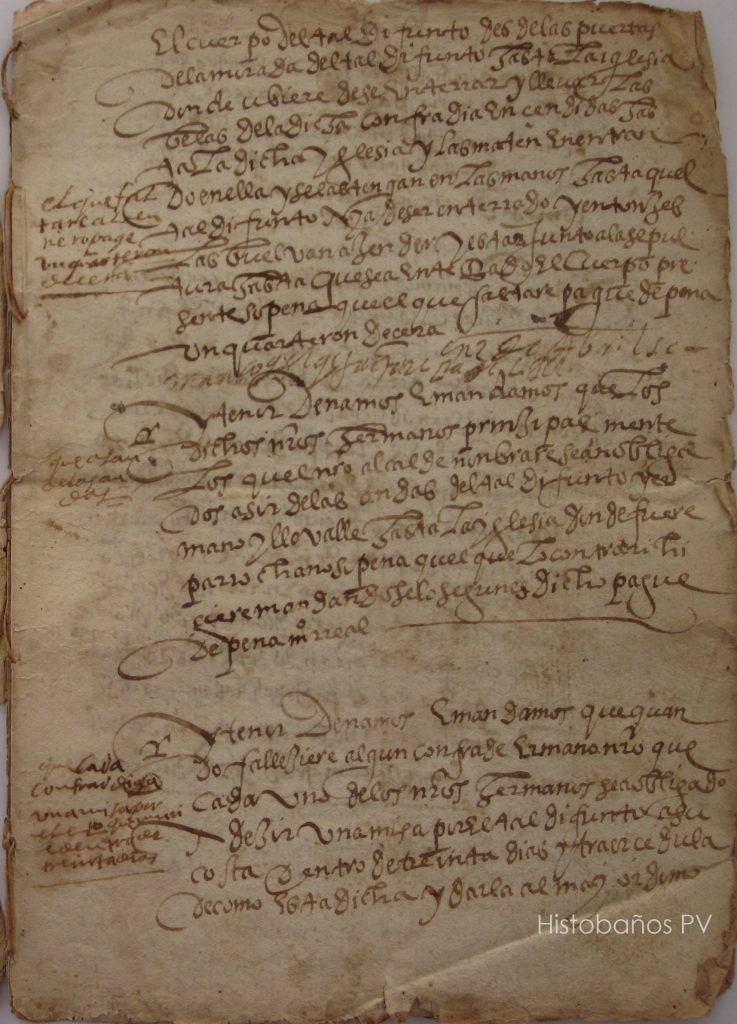 El cuerpo del tal difunto desde las puertas
de la mirada del tal difunto hasta la iglesia
donde ubiere de se enterrar y llevar las
belas de la dicha confradia encendidas has
ta la dicha yglesia y las maten en entran
do en ella y se las tengan en las manos hasta quel
tal difunto aya de ser enterrado y entonzes
las buelvan a enzender y estar junto a la sepul
tura hasta que sea enterrado el cuerpo pre
sente so pena que el que faltare pague de pena
un quarteron de cera
el que fal
tare al en
tierro pague
un quarteron
de cera
en 2 de Abril
Yten ordenamos e mandamos que los
dichos nros hermanos prinzipalmente
los quel nro alcalde nonbrare sean oblica
dos a sir de las andas del tal difunto
mano y lleva lle hasta la yglesia donde fuere
parrochiano so pena quel que lo contrari hi
ciere mandandoselo segun es dicho pague
de pena mº real
que asan
de las an
das
Yten ordenamos e mandamos que quan
do fallesiere algun confrade ermano nro que
cada uno de los nros hermanos sea obligado
a dezir una misa por el tal difunto a su
costa dentro de treinta dias y traer cedula
de como esta dicha y darla al mayordomo
que cada
confrade diga
una misa por
dentro de
treinta dias
Histobaños PV